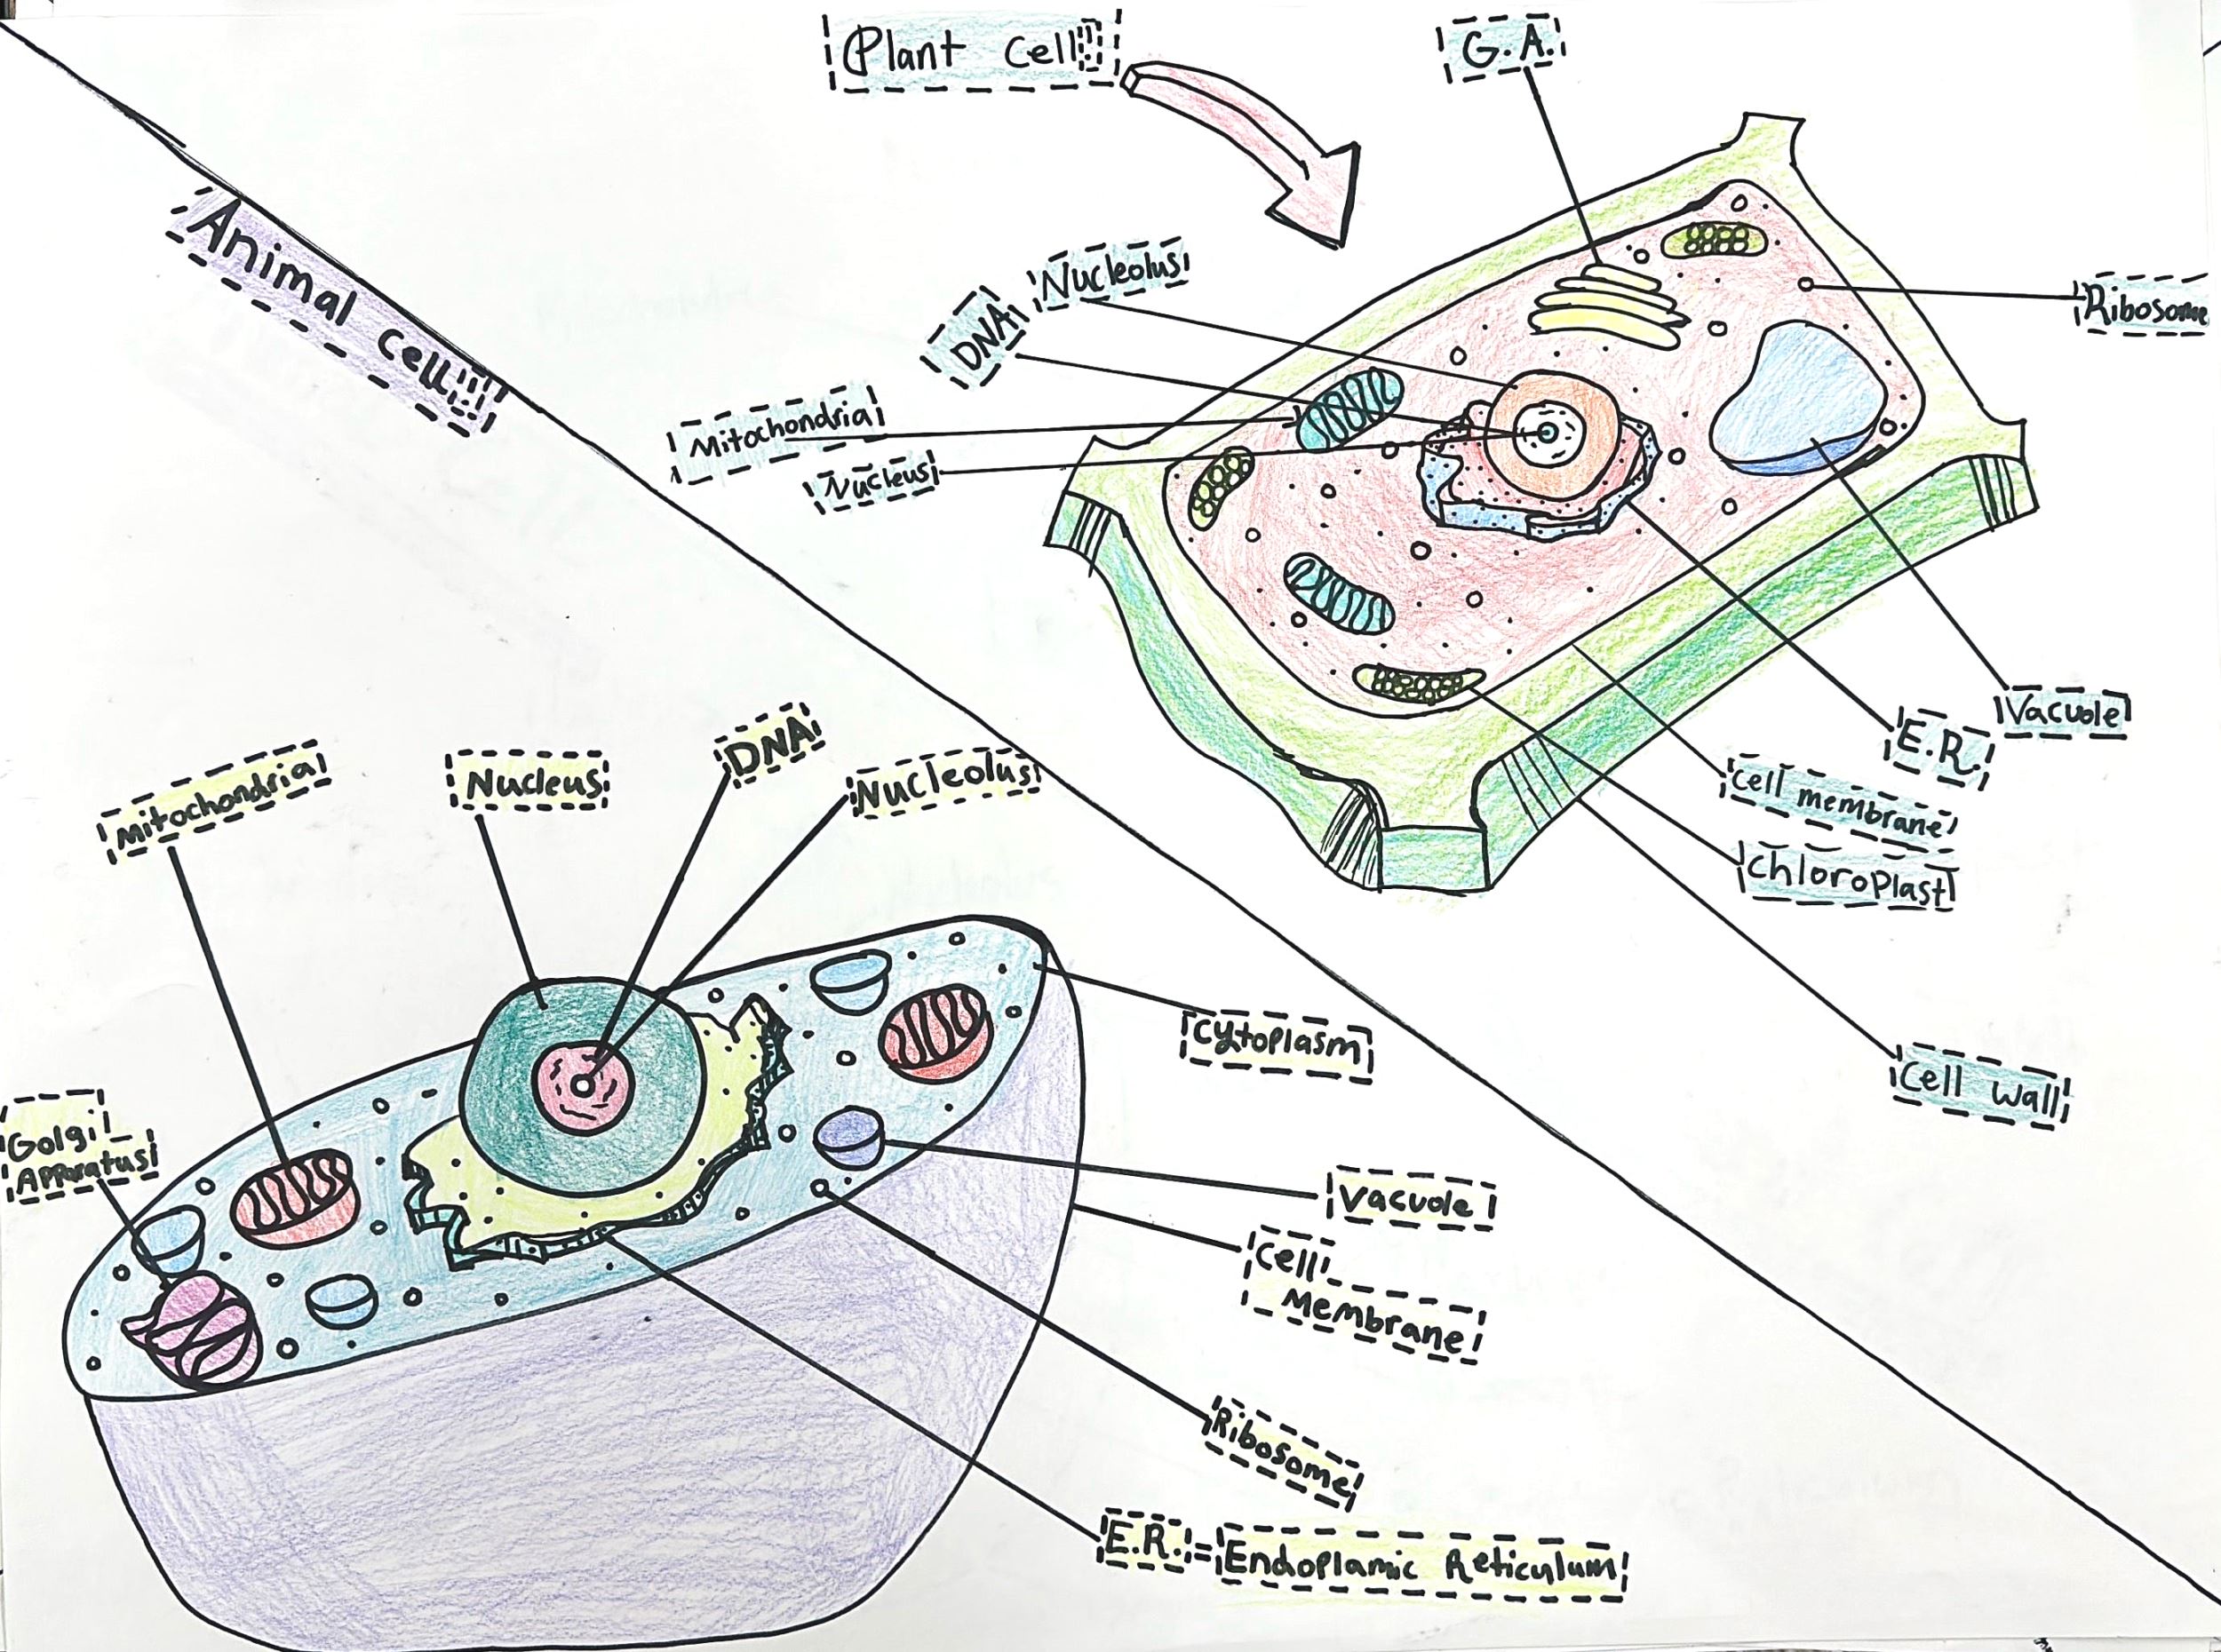 Plant Cell!!!
G.A.
Nucleolus
DNA
Mitochondria
Nucleus
Ribosome
Vacuole
E.R.
Cell membrane
Chloroplast
Cell Wall
Animal Cell!!!
Mitochondria
Nucleus
DNA
Nucleolus
Golgi
Apparatus
Cytoplasm
Vacuole
Cell
Membrane
Ribosome
E.R. = Endoplamic Reticulum